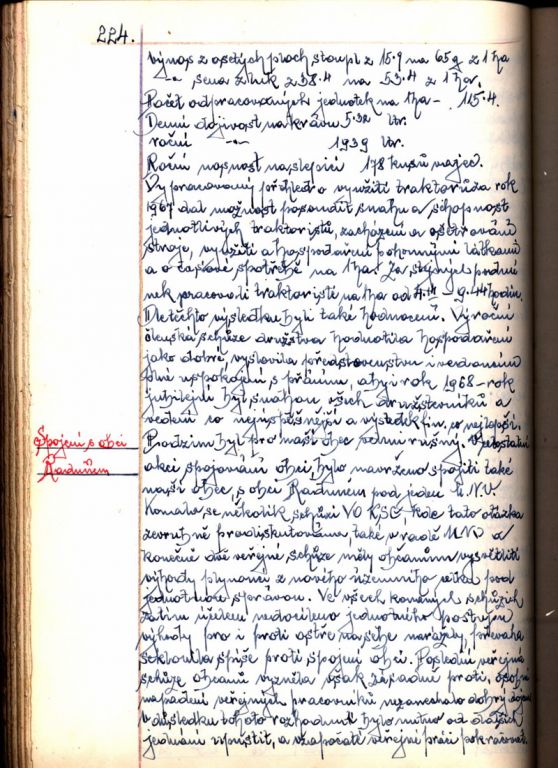 224.
výnos z osetých ploch stoupl z 15.9 na 65 q z 1 ha
-„- sena z luk z 38.4 na 53.4 z 1 ha.
Počet odpracovaných jednotek na 1 ha - 115.4.
Denní dojivost na krávu 5.32 ltr.
roční -„- 1939 ltr.
Roční nosnost na slepici 178 kusů vajec.
Vypracovaný přehled o využití traktorů za rok
1967 dal možnost posoudit snahu a schopnost
jednotlivých traktoristů, zacházení a ošetřování
stroje, využití a hospodaření pohonnými látkami
a o časové spotřebě na 1 ha. Za stejných podmí
nek pracovali traktoristi na 1 ha od hodin.
Dle těchto výsledků byli také hodnoceni. Výroční
členská schůze družstva hodnotila hospodaření
jako dobré, vyslovila představenstvu i vedoucím
plné uspokojení s přáním, aby i rok 1968 - rok
jubilejní byl snahou všech družstevníků a
vedení co nejúspěšnější a výsledk fin. co nejlepší.
Spojení s obcí
Raduném
Podzim byl pro naši obec velmi rušný. V celostátní
akci spojování obcí, bylo navrženo spojiti také
naši obec, s obcí Raduném pod jeden M.N.V.
Konalo se několik schůzí VO KSČ, kde tato otázka
zevrubně prodiskutována také v radě MNV a
konečně dvě veřejné schůze měly občanům vysvětliti
výhody plynoucí z nového územního celku pod
jednotnou správou. Ve všech konaných schůzích
za tím účelem nedocíleno jednotného postupu
výhody pro i proti ostře na sebe narážely, převaha
se klonila spíše proti spojení obcí. Poslední veřejná
schůze občanů vyzněla však zásadně proti, osobní
napadení veřejných pracovníků nezanechalo dobrý dojem
V důsledku tohoto rozhodnutí bylo nutno od dalších
jednání upustit, a v započaté veřejné práci pokračovat.